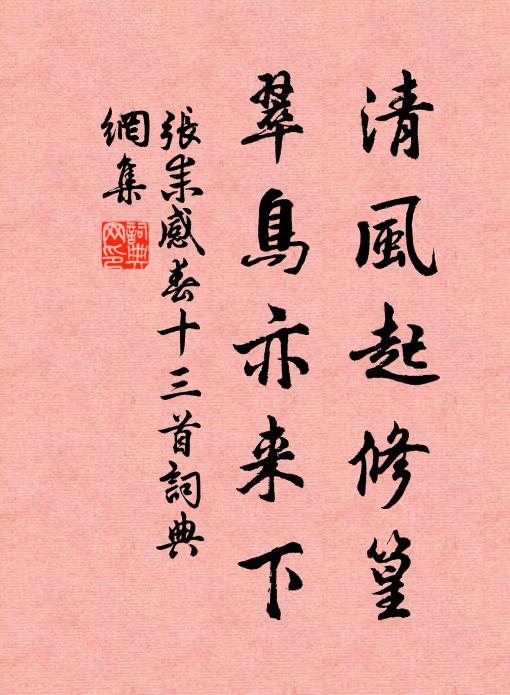 清風起修篁
翠鳥亦来下
張耒感春十三首詞典
網集
詞典
网印